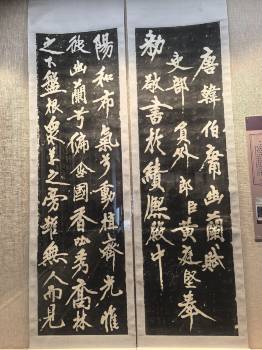 唐韓伯庸幽蘭賦
吏部員外郎臣黃庭堅奉
勅敬書於績熙殿中
陽和布氣兮動植齊光惟
彼幽蘭兮偏含國香吐秀喬林
之下盤根衆草之旁雖無人而見